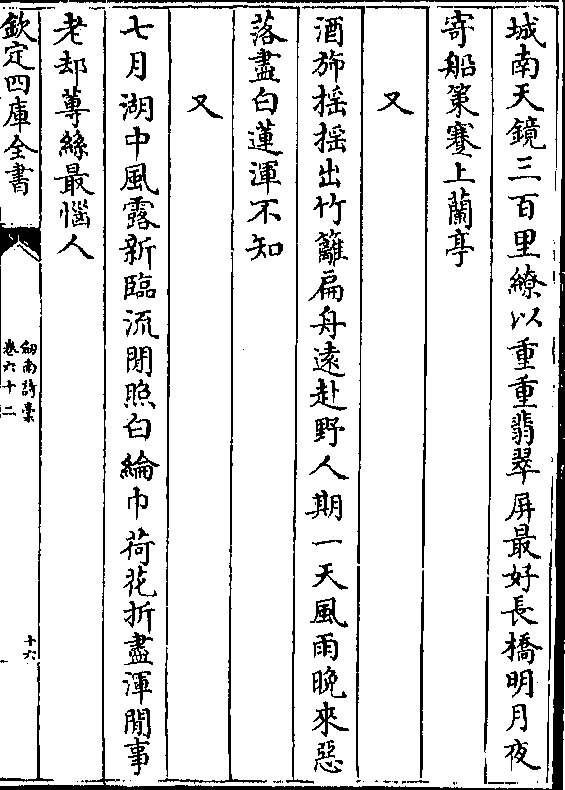 城南天鏡三百里繚以重重翡翠屏最好長橋明月夜
寄船策蹇上蘭亭
又
酒斾搖搖出竹籬扁舟遠赴野人期一天風雨晚來惡
落盡白蓮渾不知
又
七月湖中風露新臨流閒照白綸巾荷花折盡渾閒事
老却蓴絲最惱人
欽定四庫全書
劒南詩稾
卷六十二
十六